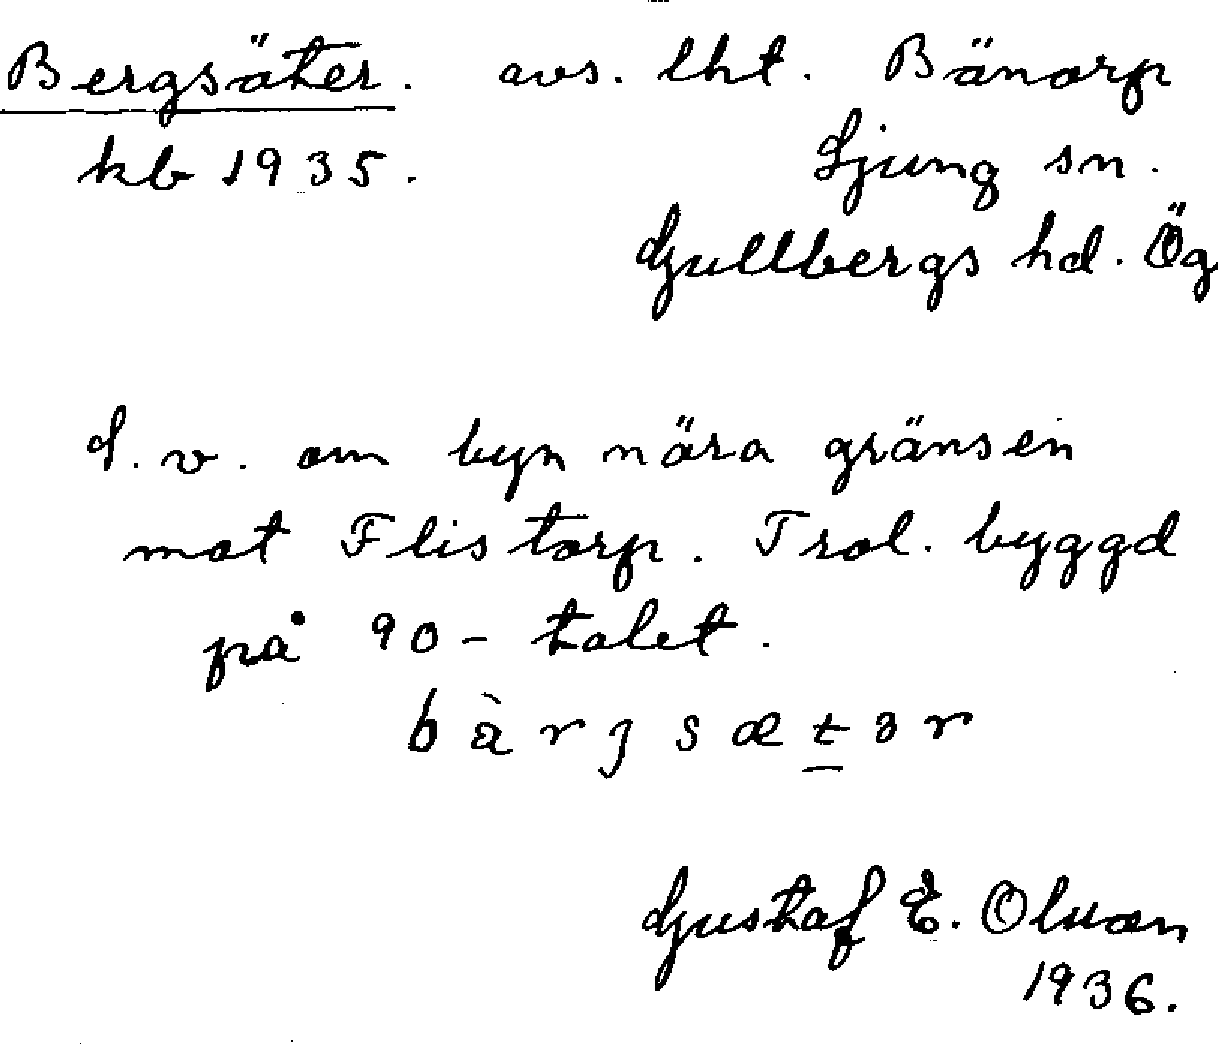 Bergsäter. avs. lht. Bänorp
kb 1935. Ljung sn.
Gullbergs hd. Ög
S. v. om byn nära gränsen
mot Flistorp. Trol. byggd
på 90-talet.
bàrjsætər
Gustaf E. Olsson
1936.